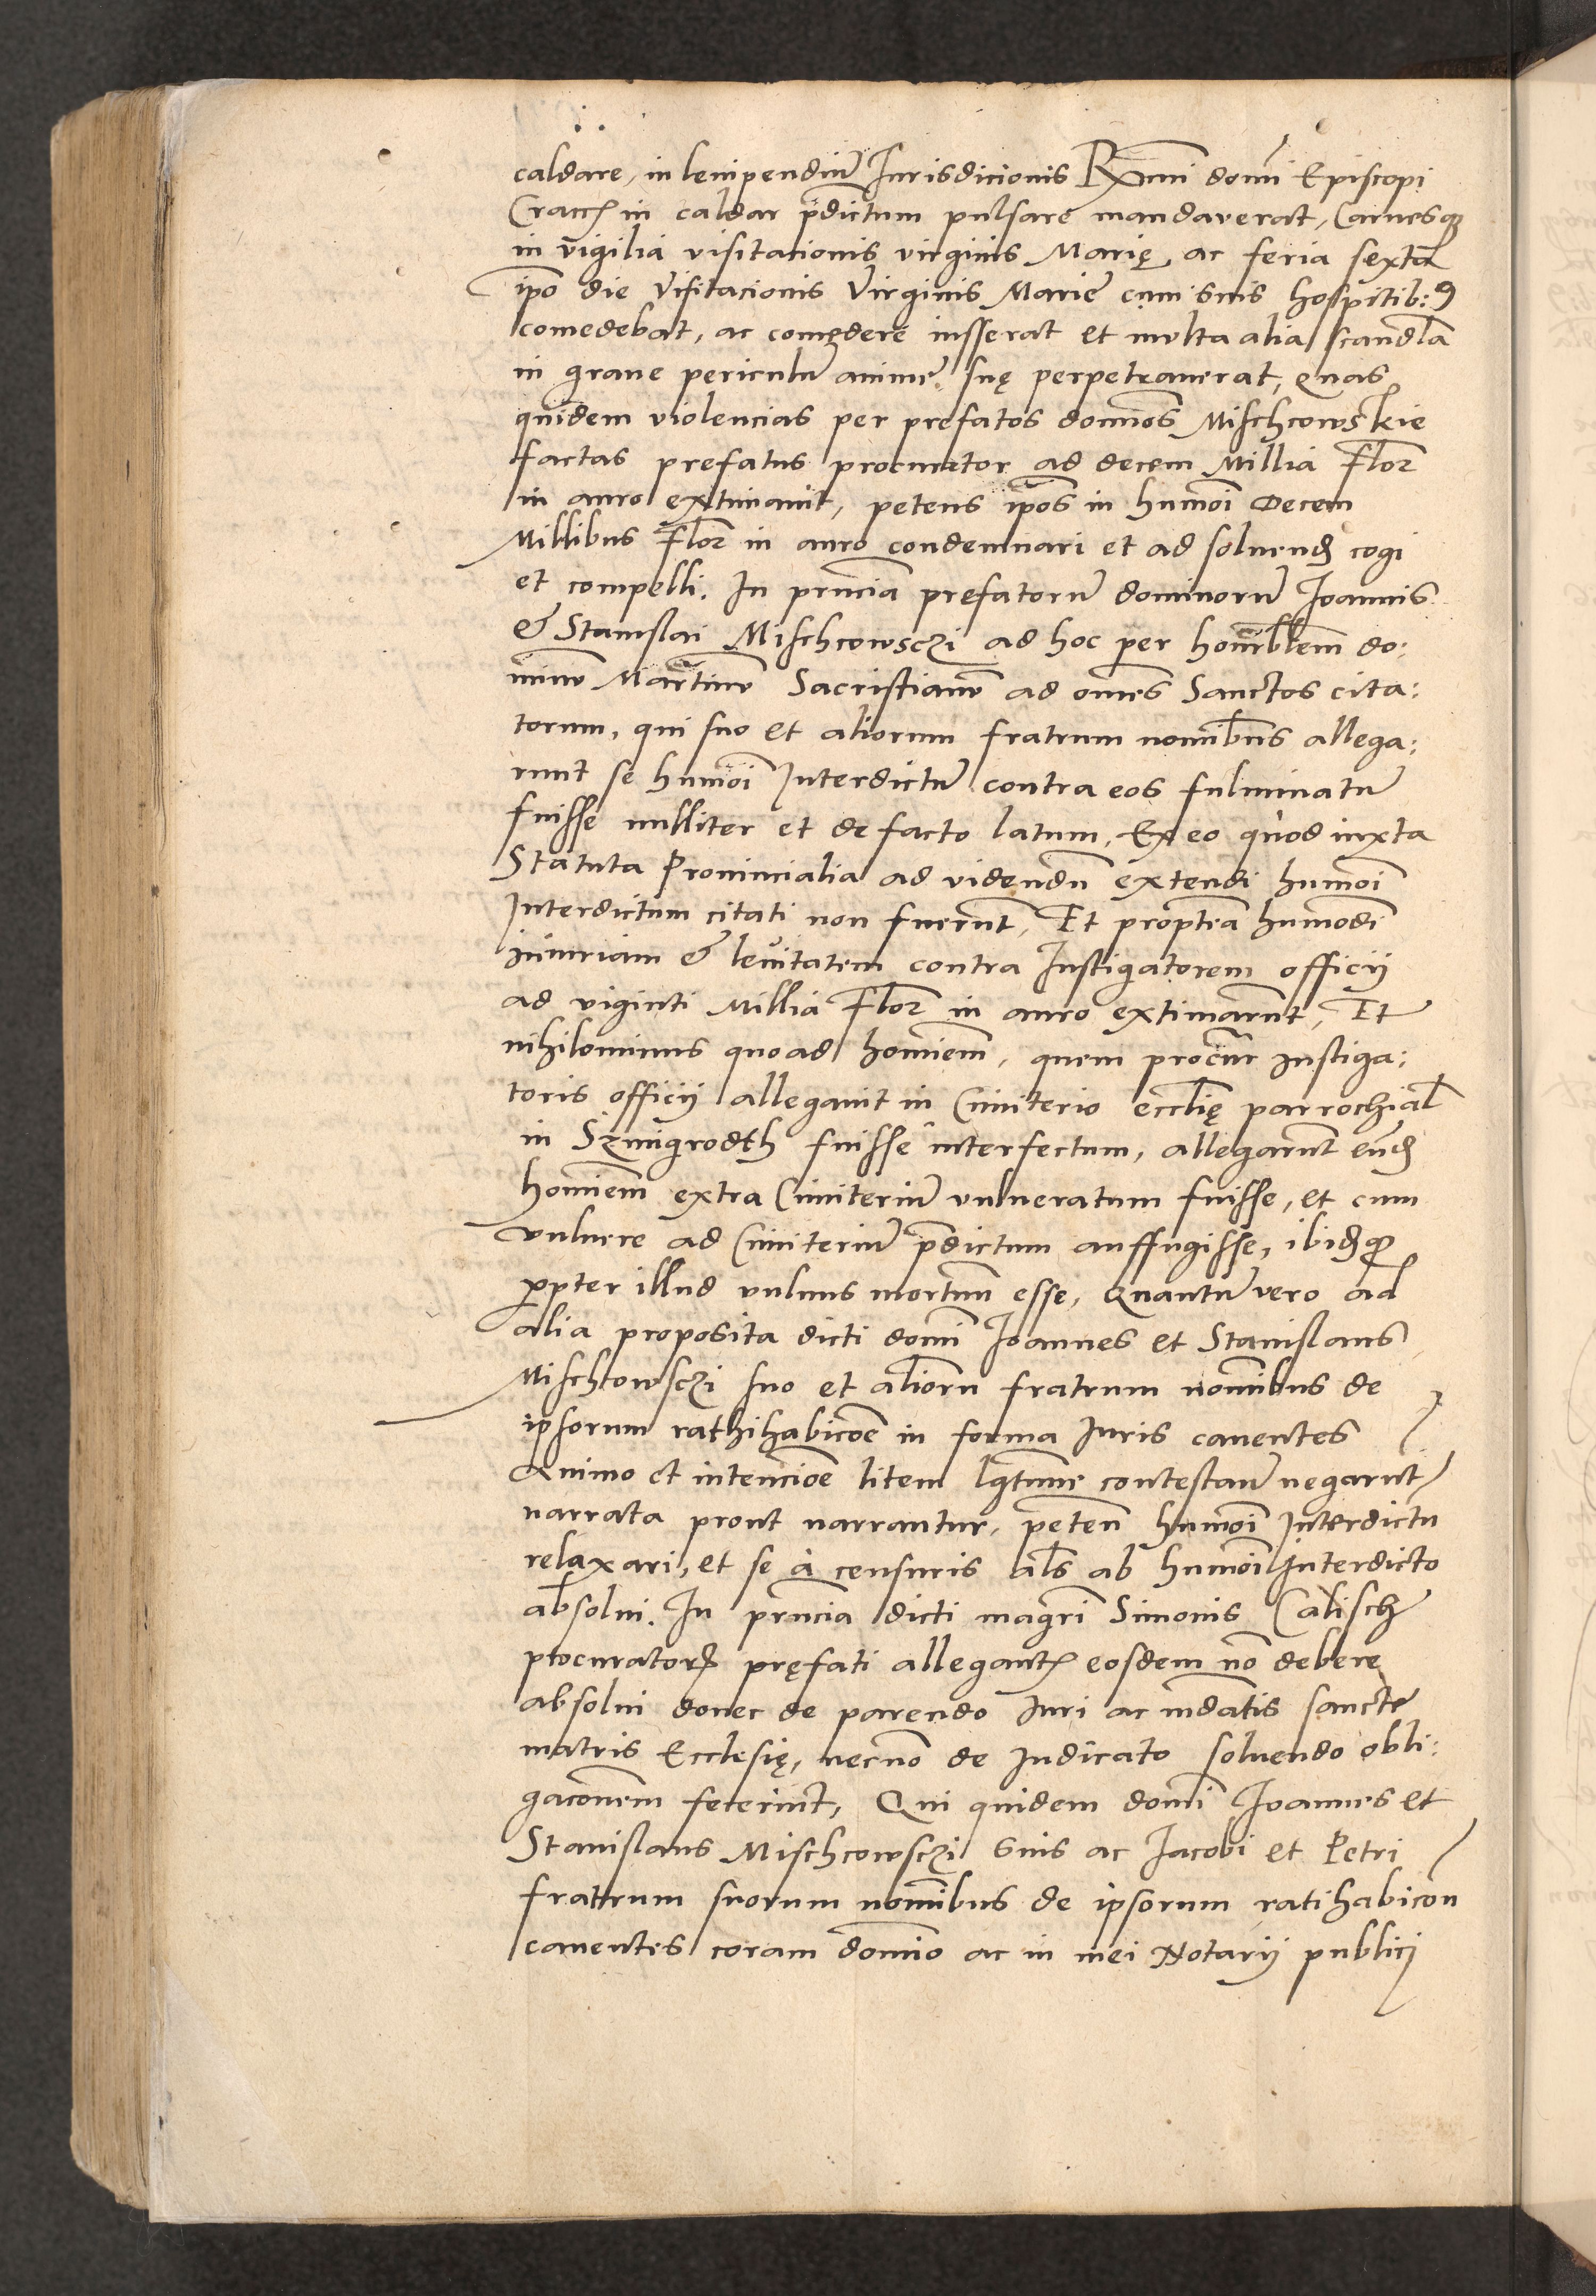 caldare, in levipendiũ Jurisdicionis Rx̃mi domĩ Episcopi
Cracꝭ in caldar p̃dictum pulsare mandaverat, Carnesqꝫ
in vigilia visitationis virginis Marię ac feria sexta
ip̃o die Visitacionis Virginis Marie cum suis hospitib:9
comedebat, ac comedere iusserat et multa alia scandl̃a
in grave periculũ animę suę perpetraverat, Quas
quidem violencias per prefatos domĩos Mischcowskie
factas prefatus procurator ad decem Millia Flor̃
in auro extimavit, petens ip̃os in hm̃oi Decem
Millibus Flor̃ in auro condemnari et ad solvend̃ cogi
et compelli. In pr̃ncia prefatorũ dominorũ Joannis
& Stanislai Mischcowsczi ad hoc per honr̃ablem̃ do:
minũ Martinũ Sacristianũ ad om̃es Sanctos cita:
torum, qui suo et aliorum fratrum nom̃ibus allega:
runt se hm̃oi Interdictũ contra eos fulminatũ
fuisse nulliter et de facto latum, Ex eo quod iuxta
Statuta Provincialia ad videndũ extendi hm̃oi
Interdictum citati non fuerũt, Et propterea hm̃odi
iniuriam & levitatem contra Instigatorem officij
ad viginti Millia Flor̃ in auro extimarũt, Et
nihilominus quoad homĩem, quem procur̃ Instiga:
toris officij allegavit in Cimiterio eccl̃ię parrochial̃
in Szmigrodth fuisse interfectum, allegarũt eund̃
homĩem extra Cimiteriũ vulneratum fuisse, et cum
vulnere ad Cimiteriũ p̃dictum auffugisse, ibid̃qꝫ
propter illud vulnus mortuũ esse, Quantũ vero ad
alia proposita dicti domĩ Joannes et Stanislaus
Mischcowsczi suo et aliorũ fratrum nom̃ibus de
ipsorum rathihabicõe in forma Juris caventes
Animo et intencõe litem lg̃time contestañ negarũt
narrata prout narrantur, peteñ hm̃oi Interdictũ
relaxari, et se à censuris al̃s ab hm̃oi Interdicto
absolvi. In pr̃ncia dicti magr̃i Simonis Calisch
procuratorꝭ pręfati allegantꝭ eosdem nõ debere
absolvi donec de parendo Juri ac mãdatis sancte
matris Ecclesię, necnõ de Iudicato solvendo obli:
gacõnem fecerint, Qui quidem domĩ Joannes et
Stanislaus Mischcowsczi Suis ac Jacobi et Petri
fratrum suorum nom̃ibus de ipsorum ratihabicoñ
caventes coram Domĩo ac in mei Notarij publici